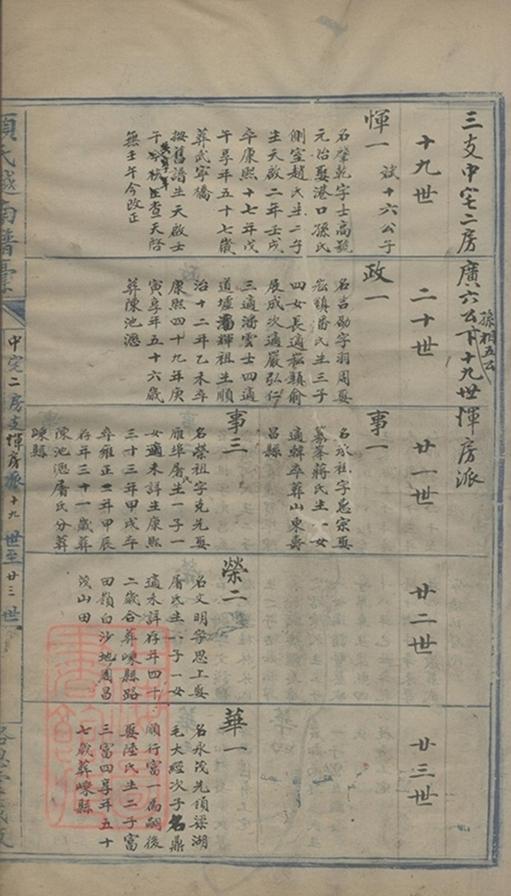 三支中宅二房廣六公下十九世惲房派
孫相五公
十九世
惲一
斌十六公子
名肇乾字士高號
元怡娶港口孫氏
側室趙氏生二子
生天啟二年壬戌
卒康熙十七年戊
午享年五十七歲
葬武寧橋
按舊譜生天啟士
查天啟
無壬午今改正
二十世
政一
名吉勛字羽周娶
宏鎮潘氏生三子
四女長適嵩鎮俞
展成次適嚴弘仁
三適潘雲士四適
道墟潘輝祖生順
治十二年乙未卒
康熙四十九年庚
寅享年五十六歲
葬陳池漊
廿一世
事一
名承祖字惠宗娶
蔣氏生一女
適韓卒葬山東壽
昌縣
事三
名榮祖字克先娶
雁埠屠氏生一子一
女適未詳生康熙
三十三年甲戌卒
卒雍正二年甲辰
存年三十一歲葬
陳池漊屠氏分葬
嵊縣
廿二世
榮二
名文明字思上娶
屠氏生一子一女
適未詳存年四十
二歲合葬嵊縣路
田嶺白沙地周昌
茂山田
廿三世
華一
名永茂先領梁湖
毛大經次子名鼎
順行富一為嗣後
娶陸氏生二子富
三富四享年五十
七歲葬嵊縣
項氏
南譜
中宅二房支惲房派十九世至廿三世